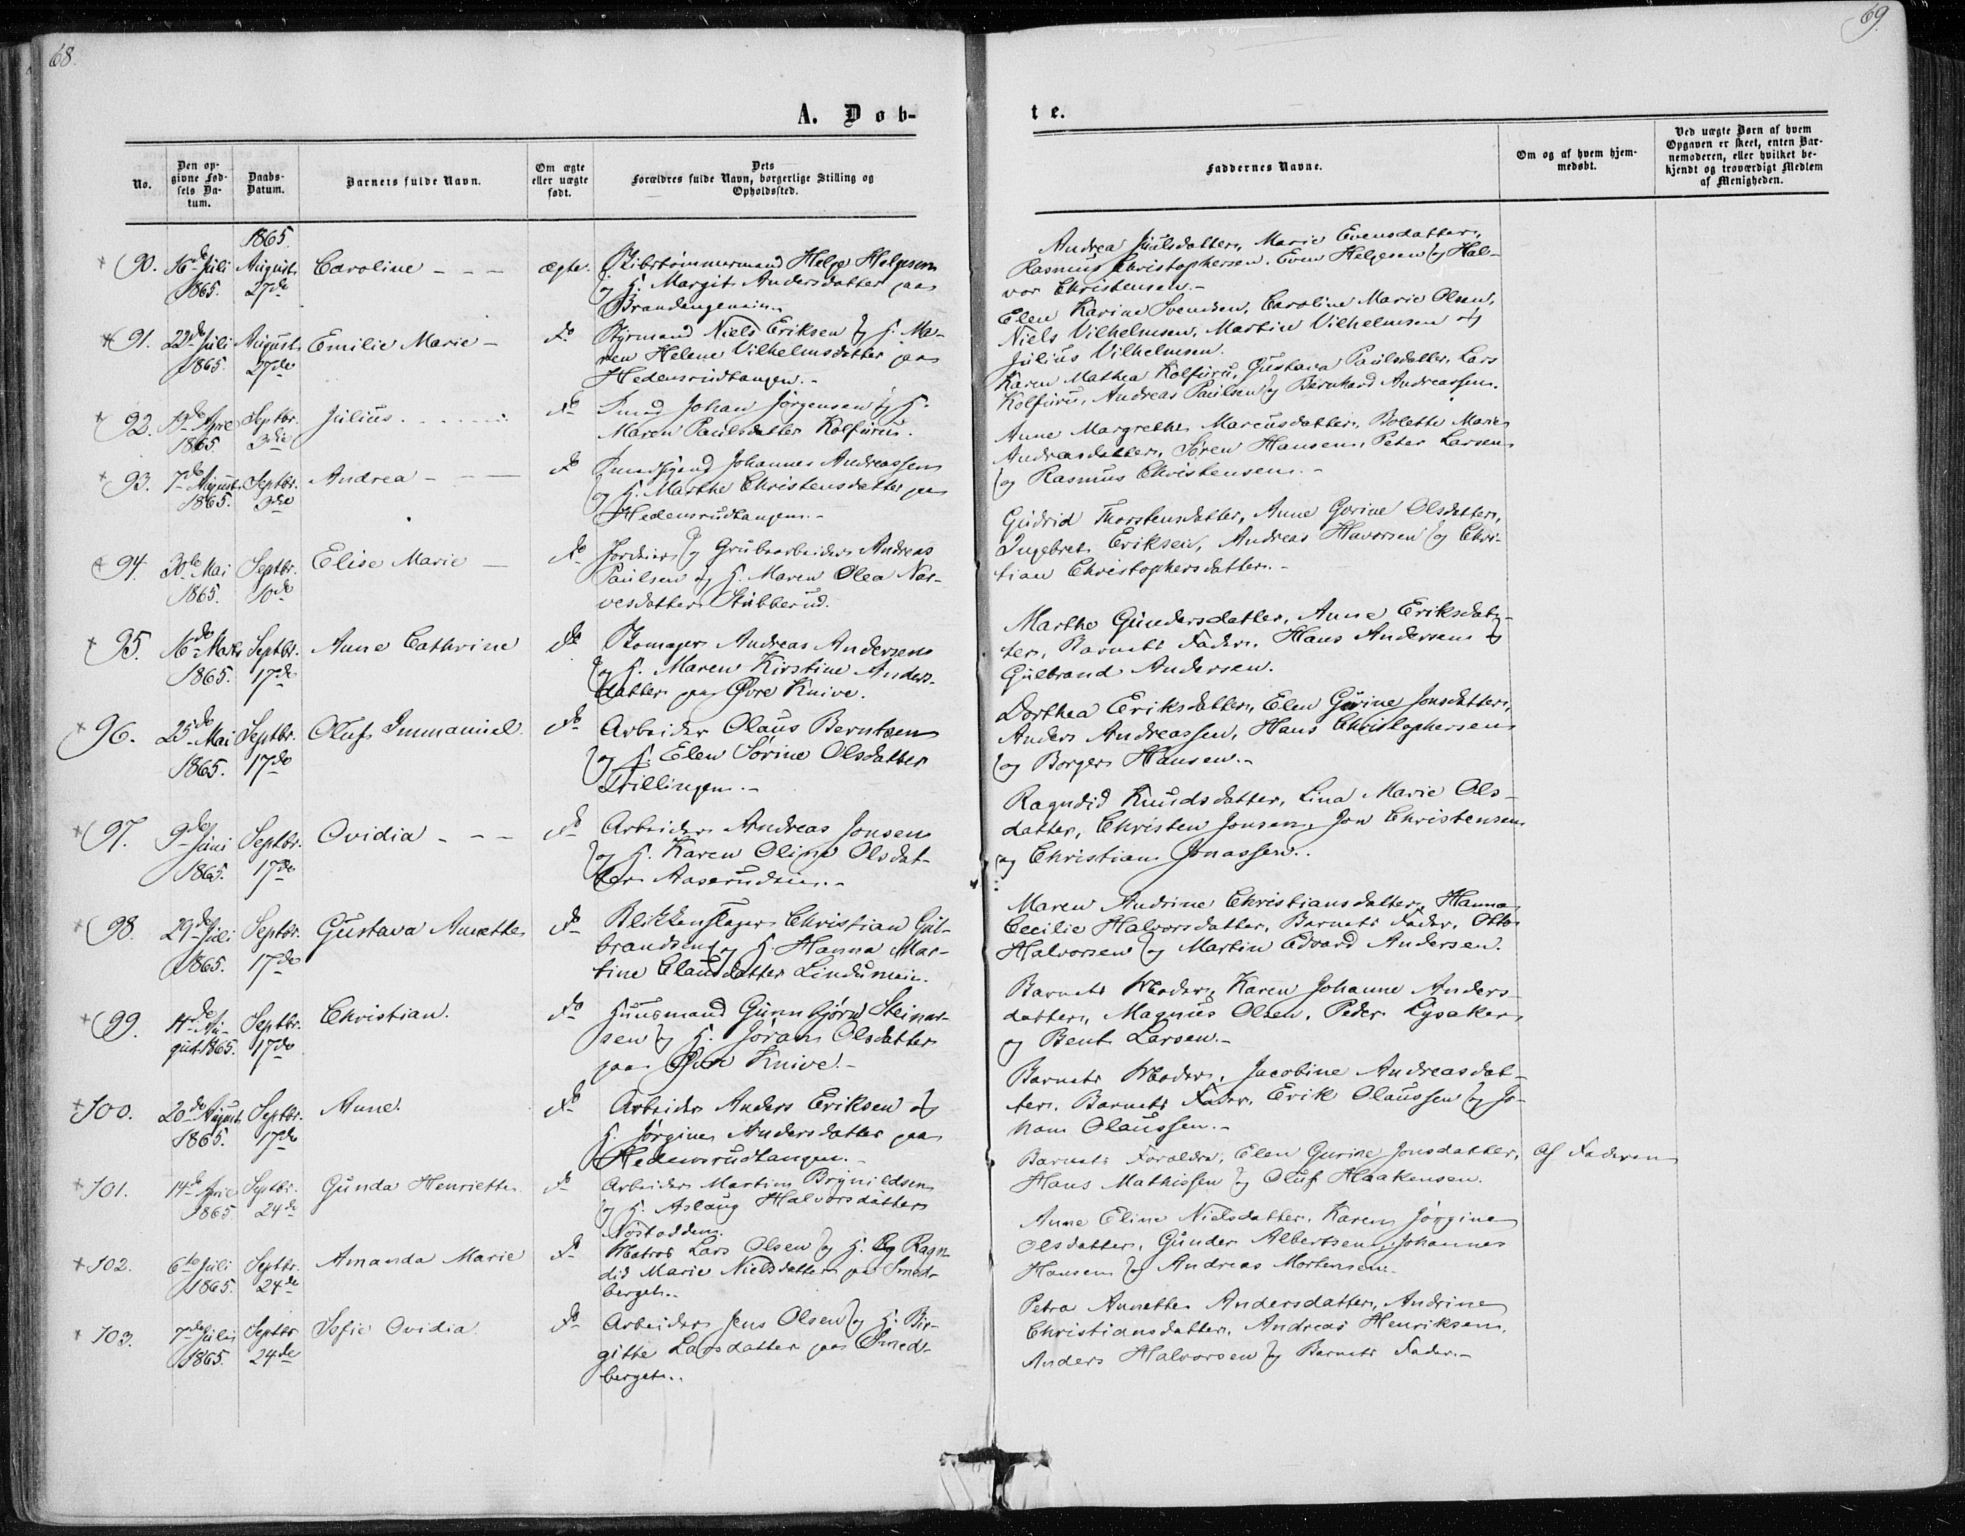 68.
69.
A. Døb-
te.
No.
Den op-
givne Fød-
sels Da-
tum.
Daabs-
Datum.
Barnets fulde Navn.
Om ægte
eller uægte
født.
Dets
Forældres fulde Navn, borgerlige Stilling og
Opholdssted.
Faddernes Navne.
Om og af hvem hjem-
medøbt.
Ved uægte Børn af hvem
Opgaven er skeet, enten Bar-
nemoderen, eller hvilket be-
kjendt og troværdigt Medlem
af Menigheden.
1865.
90. 16de Juli August Caroline - - - ægte. Skibstømmermand Helge Helgesen
1865. 27de og H. Margit Andersdatter paa
Brandengeneie.
Andrea Juulsdatter, Marie Evensdatter,
Rasmus Christophersen, Even Helgesen og Hal-
vor Christensen.-
91. 22de Juli August Emilie Marie - do Styrmand Niels Eriksen og H. Ma-
1865. 27de ren Helene Vilhelmsdatter paa
Hedensrudtangen.-
Elen Karine Svendsen, Caroline Marie Olsen,
Niels Vilhelmsen, Martin Vilhelmsen og
Julius Vilhelmsen.
92. Apr. Septbr. Julius. do Smed Johan Jørgensen og H.
1865 3die Maren Paulsdatter Kolfuru.
Karen Mathea Kolfuru, Gustava Paulsdatter, Lars
Kolfuru, Andreas Paulsen og Bernhard Andreassen.
93. 7de August Septbr. Andrea - - - do Smedsvend Johannes Andreassen
1865. 3die og H. Marthe Christensdatter paa
Hedensrudtangen.-
Anne Margrethe Marcusdatter, Bolette Marie
Andreasdatter, Søren Hansen, Peter Larsen
og Rasmus Christensen.-
94. 30te Mai Septbr. Elise Marie - do Jordeier og Grubearbeider Andreas
1865. 10de Paulsen og H. Maren Olea Nar-
vesdatter Stubberud.
Gudrid Thorstensdatter, Anne Gurine Olsdatter,
Ingebret Eriksen, Andreas Havorsen og Chri-
stian Christophersdatter.-
95. 16de Marts Septbr. Anne Cathrine do Skomager Andreas Andersen
1865. 17de og H. Maren Kirstine Anders-
datter paa Øvre Knive.
Marthe Gundersdatter, Anne Eriksdat-
ter, Barnets Fader, Hans Andersen og
Gulbrand Andersen.
96. 25de Mai Septbr. Oluf Immanuel. do Arbeider Olaus Berntsen
1865. 17de og H. Elen Sorine Olsdatter
Killingen.-
Dorthea Eriksdatter, Elen Gurine Jonsdatter,
Anders Andreassen, Hans Christophersen
og Borger Hansen.-
97. 9de Juni Septbr. Ovidia - - - do Arbeider Andreas Jonsen
1865. 17de og H. Karen Oline Olsdat-
ter Aaserudeie.-
Ragndid Knudsdatter, Lina Marie Ols-
datter, Christen Jonsen, Jon Christensen
og Christian Jonassen.
98. 29de Juli Septbr. Gustava Annette do Blikkenslager Christian Gul-
1865. 17de brandsen og H. Hanna Mar-
tine Clausdatter Lindumeie.
Maren Andrine Christiansdatter, Hanna
Cecilie Halvorsdatter, Barnets Fader, Otto
Halvorsen og Martin Edvard Andersen.
99. 11de Au- Septbr. Christian. do Huusmand Gunnbjørn Steinar-
gust 1865. 17de sen og H. Jøran Olsdatter
paa Øvre Knive.-
Barnets Moder, Karen Johanne Anders-
datter, Magnus Olsen, Peder Lysaker
og Bent Larsen.-
100. 20de August Septbr. Anne. do Arbeider Anders Eriksen og
1865. 17de H. Jørgine Andersdatter paa
Hedensrudtangen.-
Barnets Moder, Jacobine Andreasdat-
ter, Barnets Fader, Erik Olaussen og Jo-
han Olaussen.-
101. 14de April Septbr. Gunda Henriette do Arbeider Martin Brynildsen
1865 24de og H. Aslaug Halvorsdatter
Nøstodden.
Barnets Forældre, Elen Gurine Jonsdatter, Af Faderen
Hans Mathissen og Oluf Haakensen.
102. 6te Juli Septbr. Amanda Marie do Matros Lars Olsen og H. Ragn-
1865. 24de did Marie Nielsdatter paa Smed-
berget.
Anne Eline Nielsdatter, Karen Jørgine
Olsdatter, Gunder Albertsen, Johannes
Hansen og Andreas Mortensen.
103. 7de Juli Septbr Sofie Ovidia. do Arbeider Jens Olsen og H. Bir-
1865. 24de gitte Larsdatter paa Smed-
berget.
Petra Annette Andersdatter, Andrine
Christiansdatter, Andreas Henriksen,
Anders Halvorsen og Barnets Fader.-